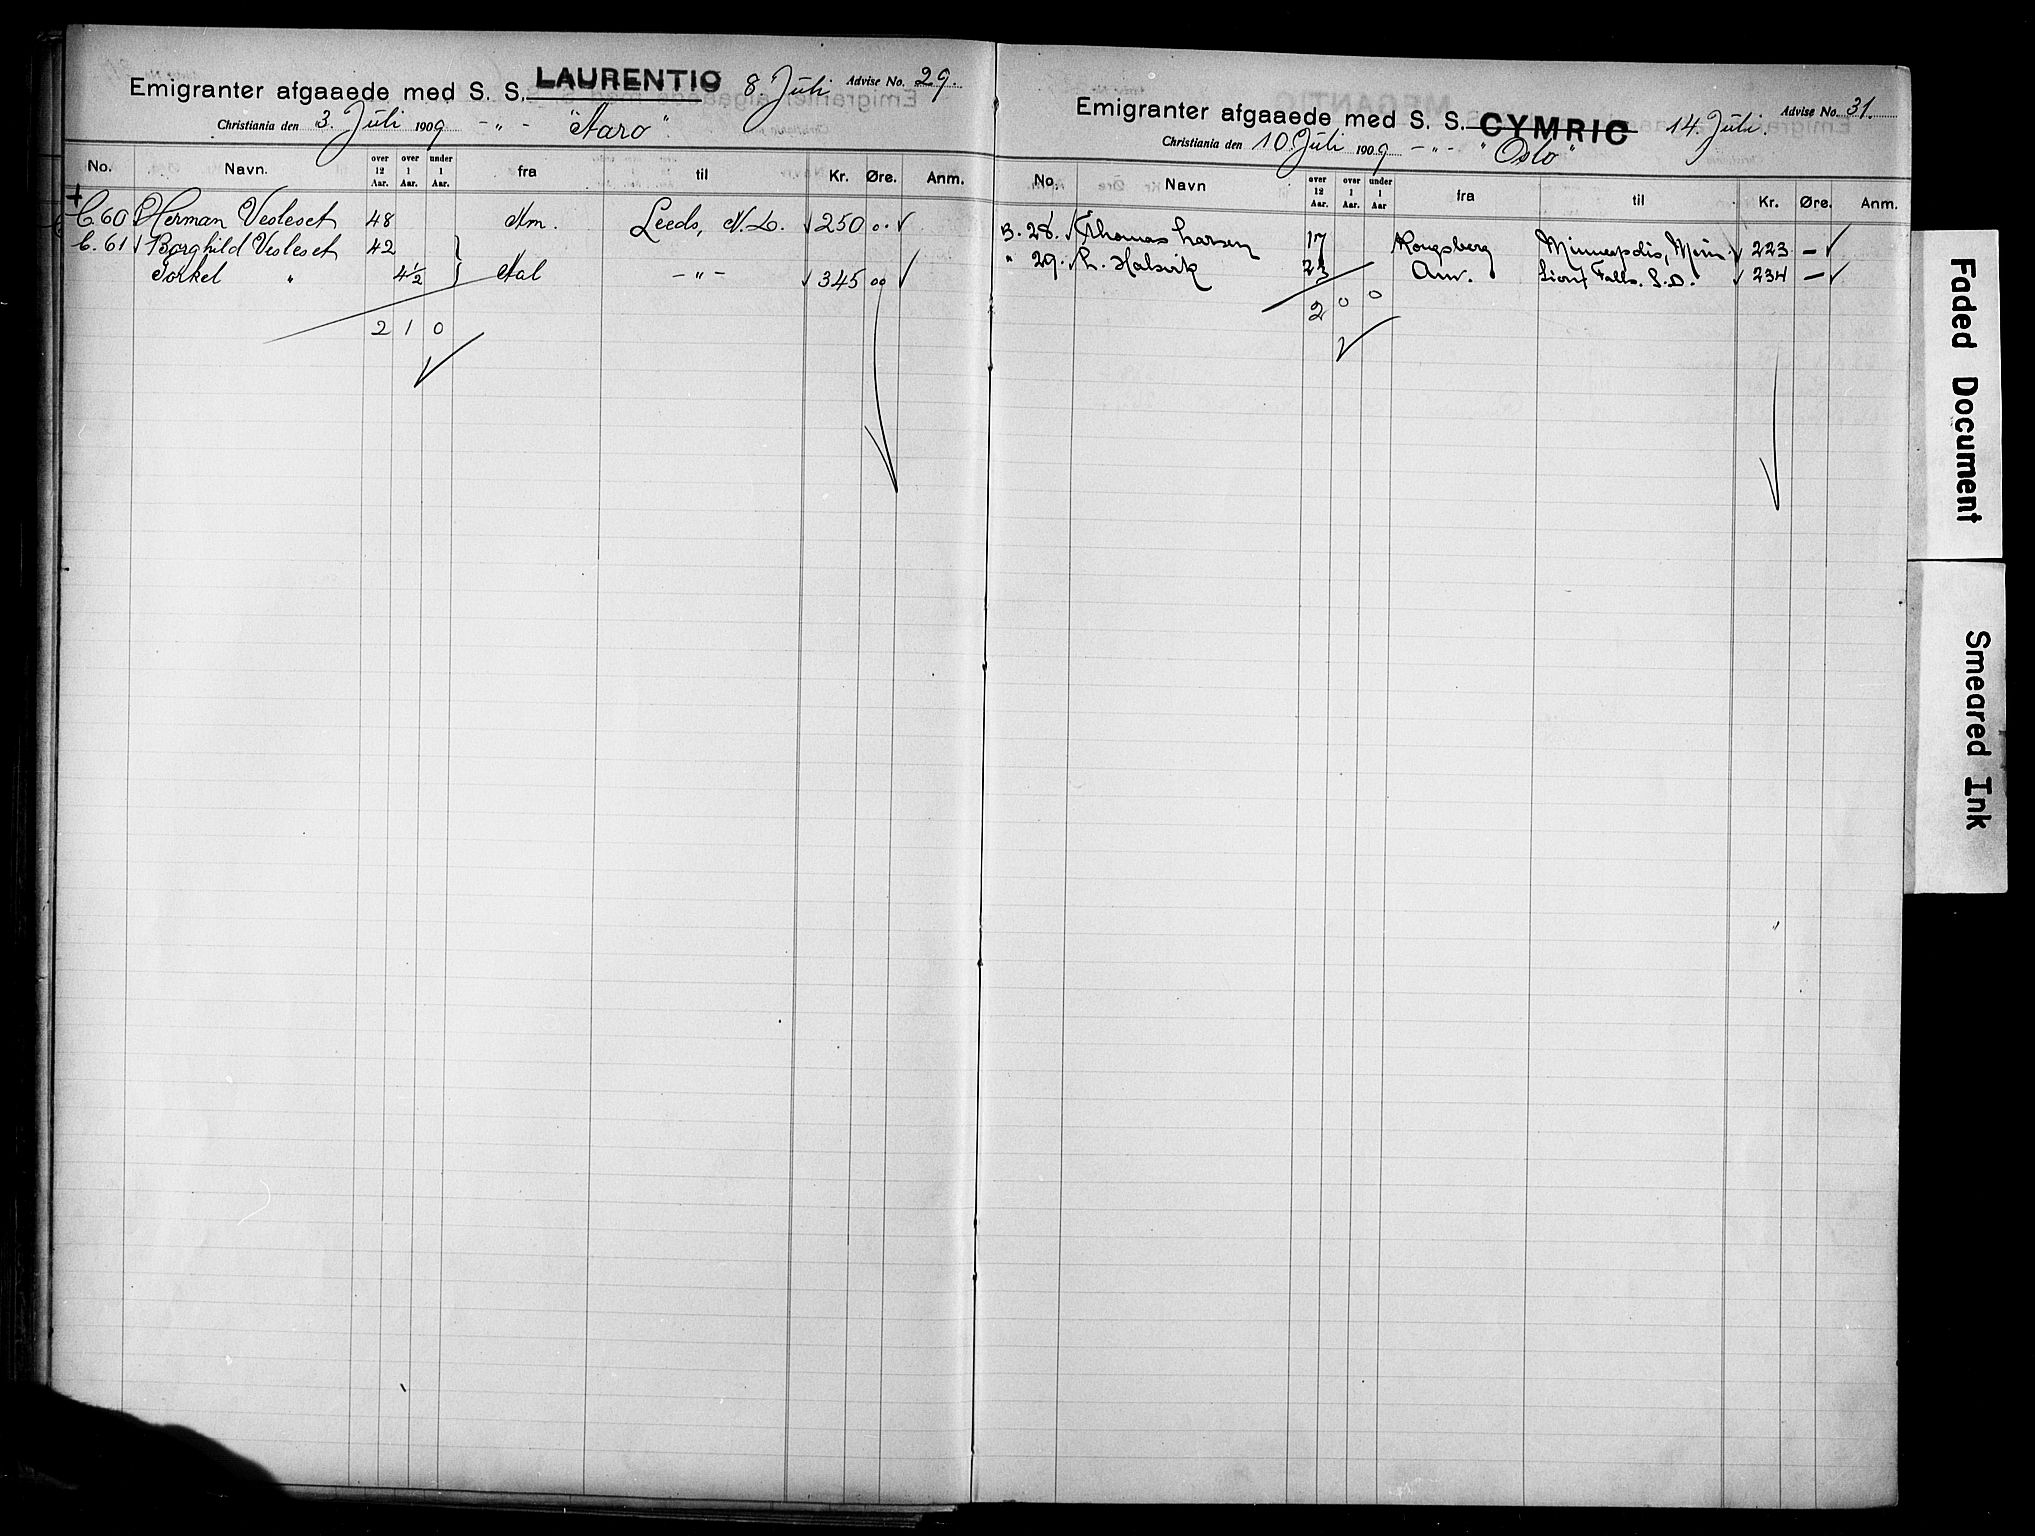 Emigranter afgaaede med S. S. LAURENTIC 8 Juli Advise No. 29.
Christiania den 3. Juli 1909 - „ - "Aaro".
No. Navn. over 12 Aar. over 1 Aar. under 1 Aar. fra til Kr. Øre. Anm.
C. 60 Herman Vesleset 48 Am. Leeds, N.D. 250 00
C. 61 Borghild Vesleset 42
Torkel " 4½ Aal - „ - 345 00
2 1 0
Emigranter afgaaede med S. S. CYMRIC 14. Juli. Advise No. 31.
Christiania den 10 Juli 1909 - „ - "Oslo"
No. Navn over 12 Aar. over 1 Aar. under 1 Aar fra til Kr. Øre. Anm.
B. 28. Thomas Larsen 17 Kongsberg Minneapolis, Minn. 223 -
" 29. L. Halsvik 23 Am. Sioux Falls. S.D. 234 -
2 0 0
Faded Document
Smeared Ink